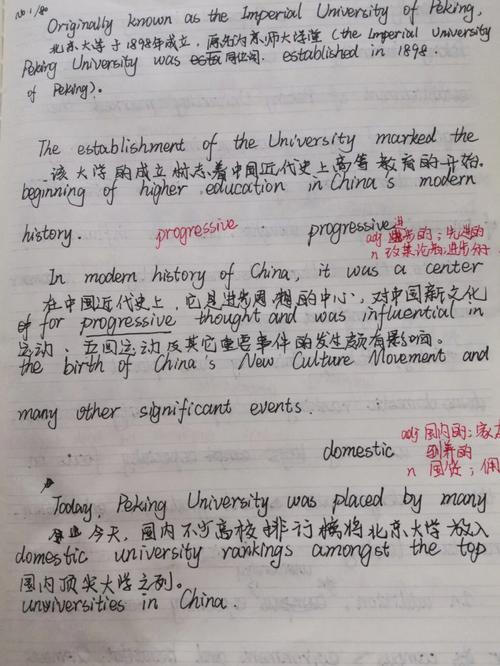 No 1/80
Originally known as the Imperial University of Peking,
北京大学于1898年成立，原名为京师大学堂(the Imperial University
Peking University was 同位词. established in 1898.
of Peking)。
The establishment of the University marked the
该大学的成立标志着中国近代史上高等教育的开始.
beginning of higher education in China's modern
history. progressive progressive adj 进步的；先进的
n 改革论者；进步
In modern history of China, it was a center
在中国近代史上，它是进步思想的中心，对中国新文化
of for progressive thought and was influential in
运动、五四运动及其它重要事件的发生颇有影响。
the birth of China's New Culture Movement and
many other significant events.
domestic adj 国内的；家
驯养的
n 国货；佣
Today, Peking University was placed by many
今天，国内不少高校排行榜将北京大学放入
domestic university rankings amongst the top
国内顶尖大学之列。
universities in China.